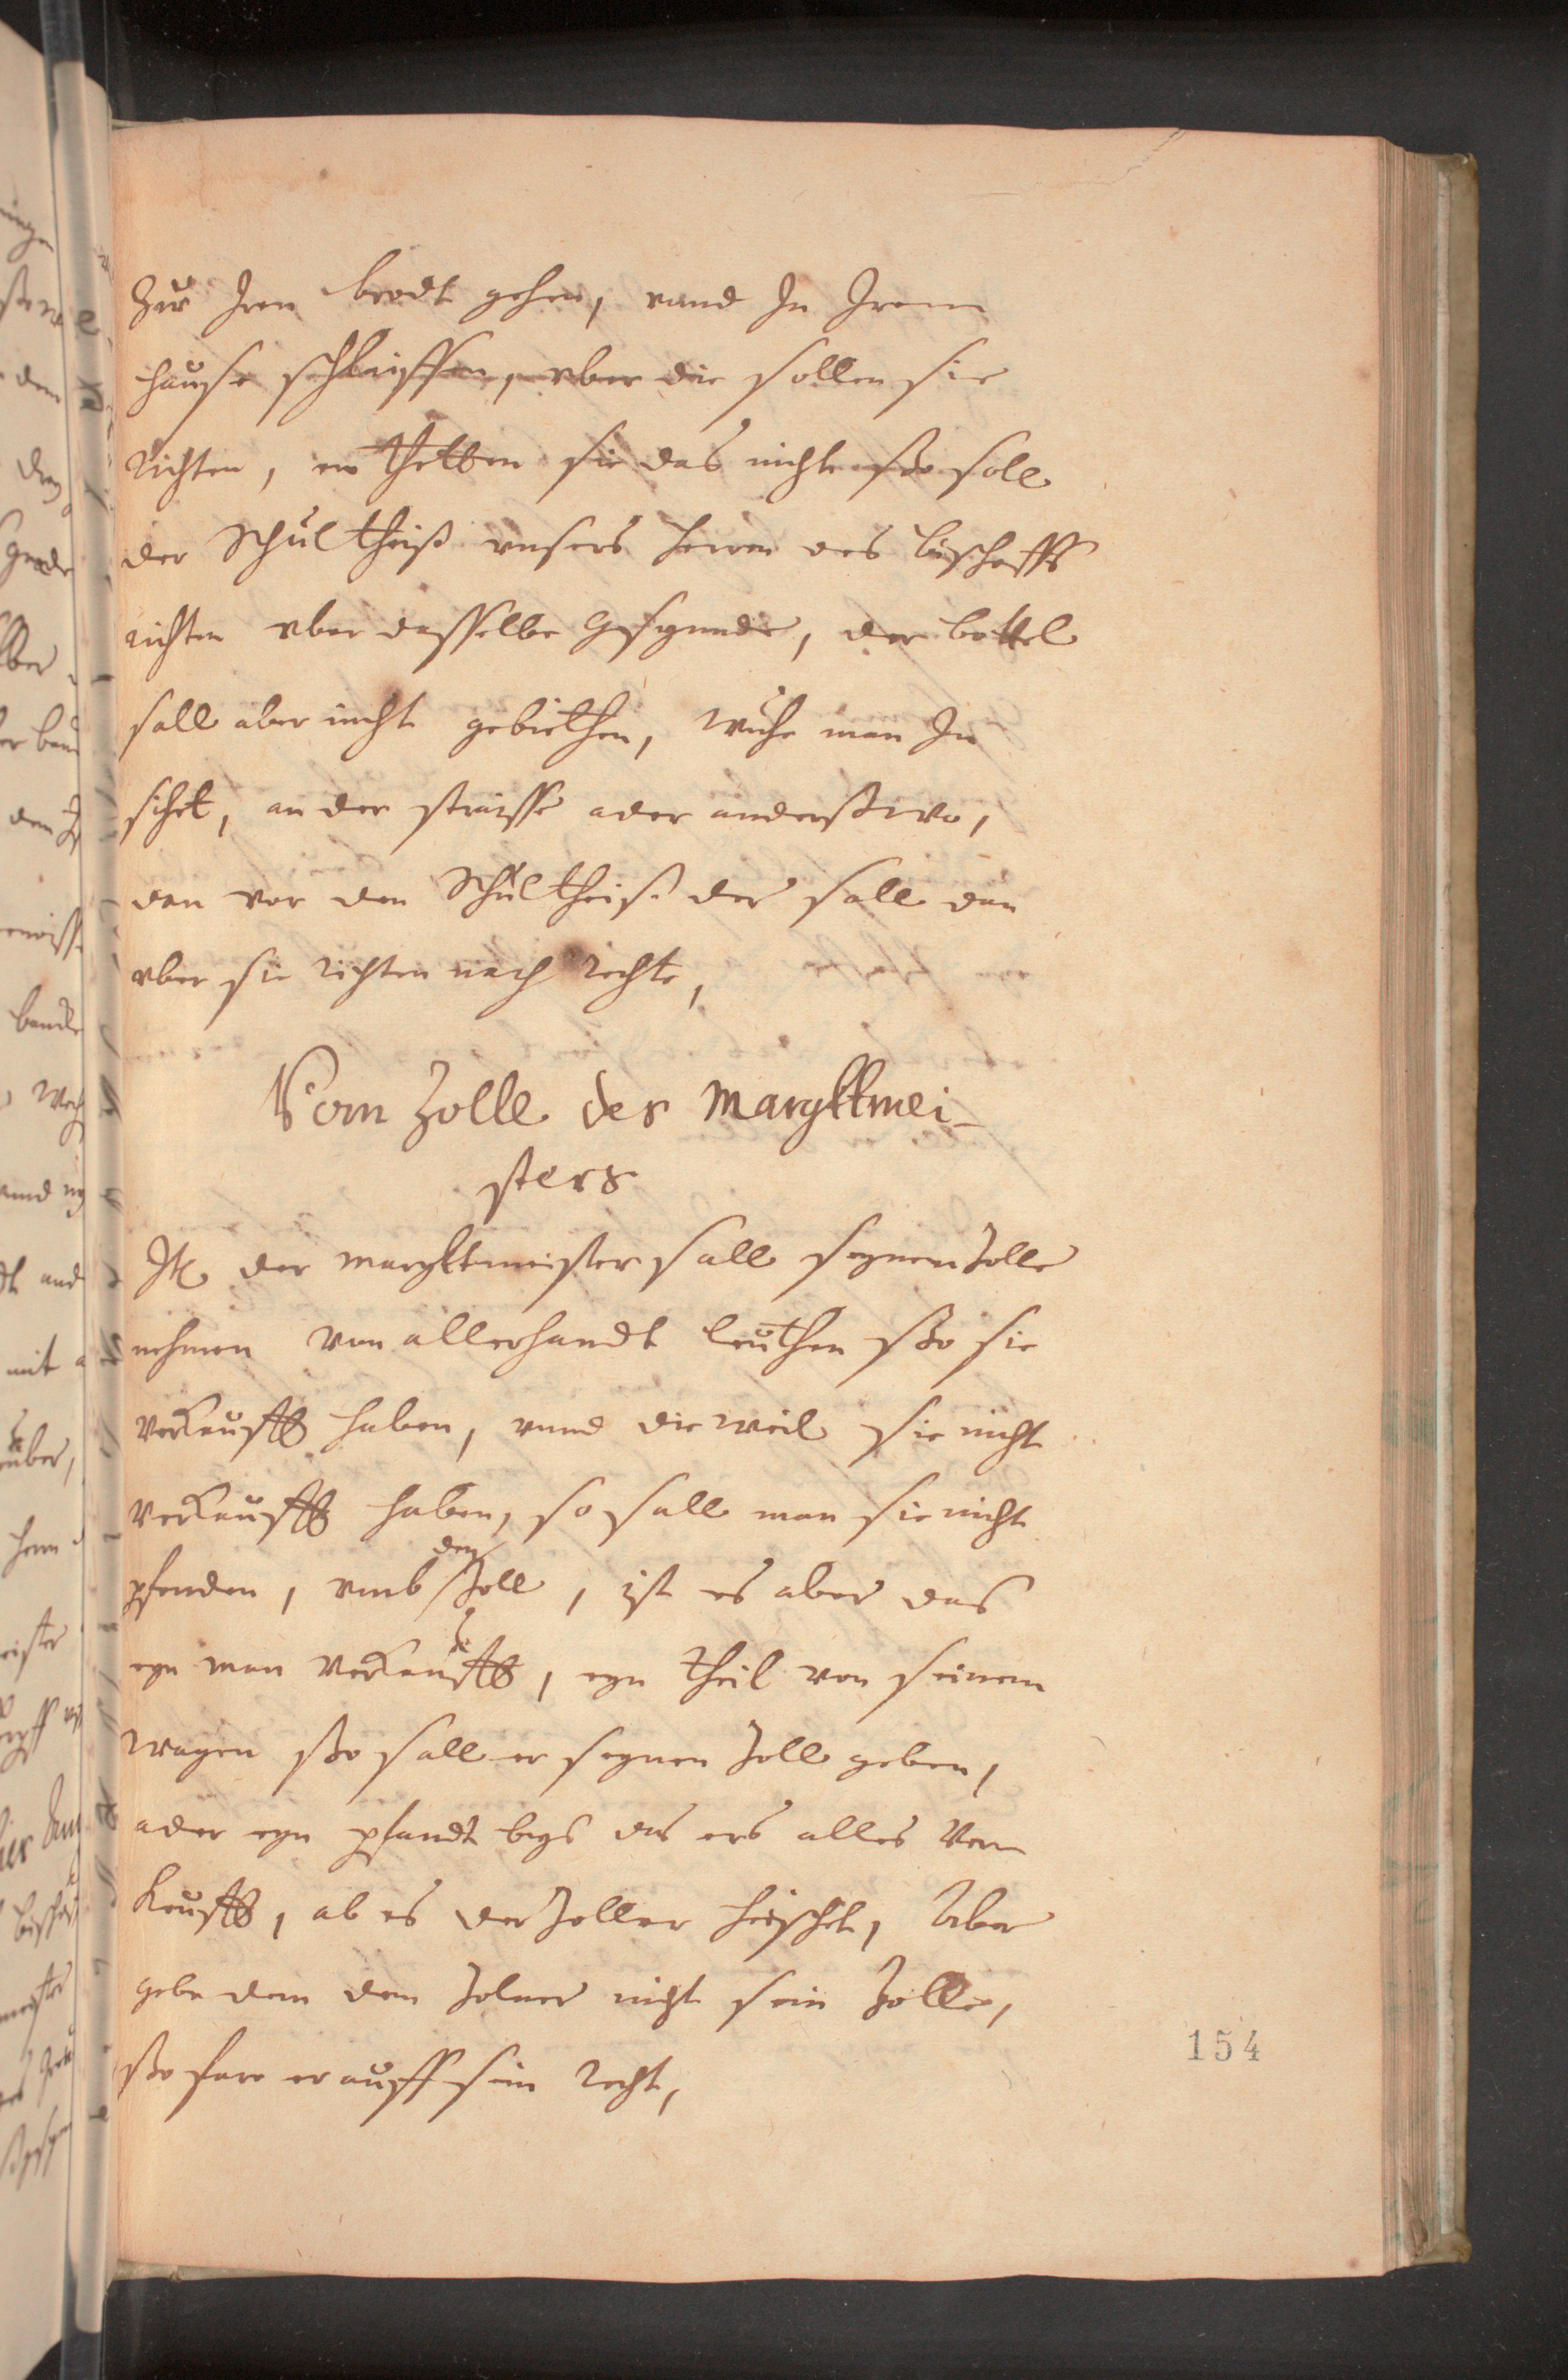 Zur Iren brodt gehen, vnnd In Irem
hause schleiffen, vber die sollen sie
richten, en thetten sie das nicht sso soll
der Schultheiß vnsers herrn des bischoffs
richten vber dasselbe gesynnde, der bottel
soll aber nicht gebiethen, wuhe man In
sihet, an der strasse ader anderßwo,
den vor den Schultheiß der soll dan
vber sie richten nach rechte,
Vom Zolle des Margktmei-
sters
Itē der margktmeister soll seynen Zolle
nehmen von allerhandt leuthen sso sie
verkaufft haben, vnnd die weil sie nicht
verkaufft haben, so soll man sie nicht
pfenden, vmb den Zoll, ist es aber das
eyn man verkaufft, eyn theil von seinem
wagen sso soll er seynen Zoll geben,
ader eyn pfandt bys das ers alles ver
keufft, ab es der Zoller heischt, Aber
gebe dem dem Zolner nicht sein Zolle,
sso fare er auff sein recht,
154